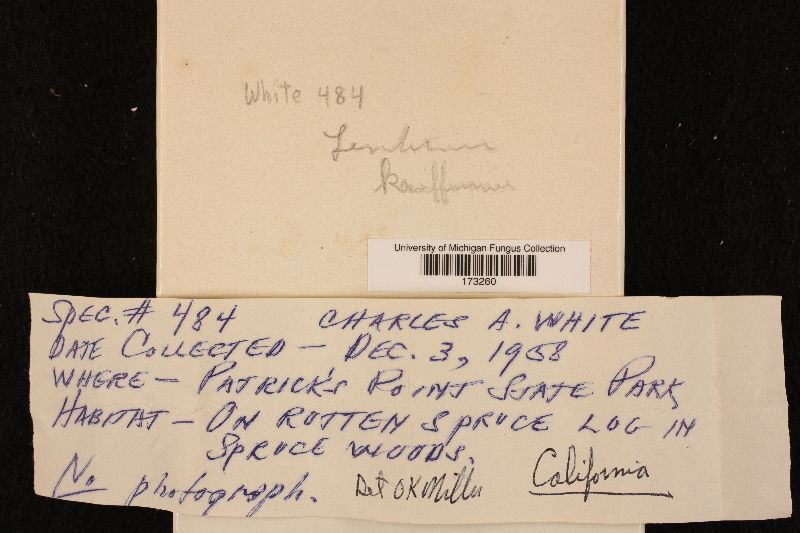 White 484
Lentinus
kauffmanii
University of Michigan Fungus Collection
173260
SPEC. # 484 CHARLES A. WHITE
DATE COLLECTED - DEC. 3, 1958
WHERE - PATRICK'S POINT STATE PARK
HABITAT - ON ROTTEN SPRUCE LOG IN
SPRUCE WOODS.
No photograph. Det OK Miller California